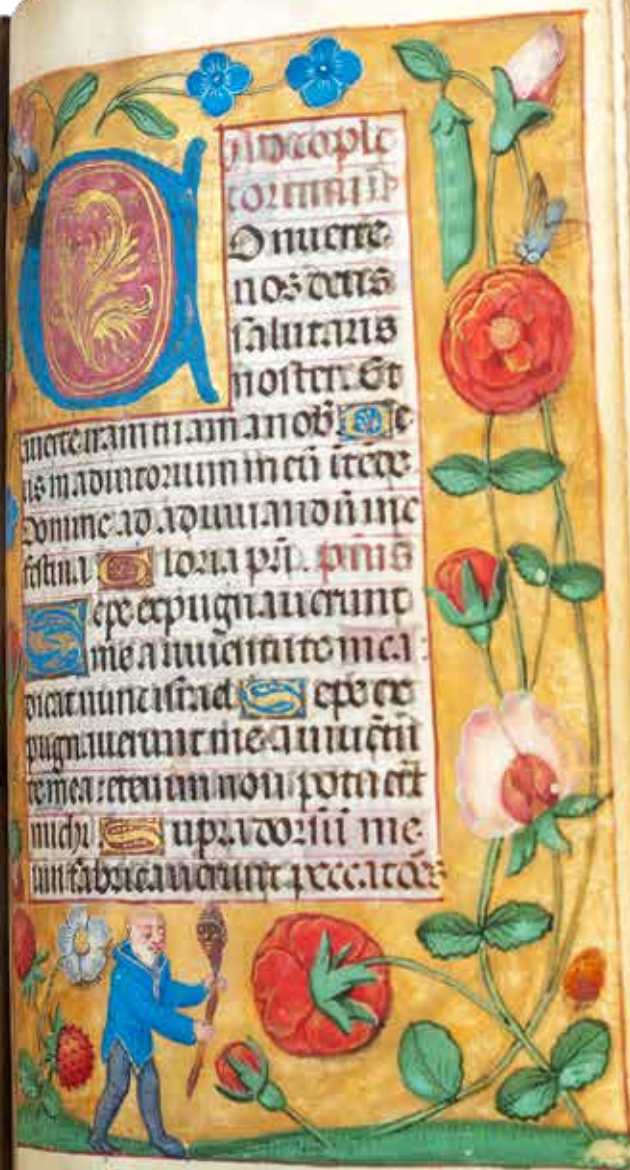 Ad comple
torium
Onuerte
nos deus
salutaris
noster. Et
auerte iram tuam a nob De
us in adiutorium meū itēde
Domine ad adiuuandū me
festina Gloria pri. psius
Sepe expugnauerunt
me a iuuentute mea:
dicat nunc israel Sepe ex
pugnauerunt me a iuuētu
te mea: etenim non potuerūt
michi Supra dorsū me
um fabricauerunt peccatores